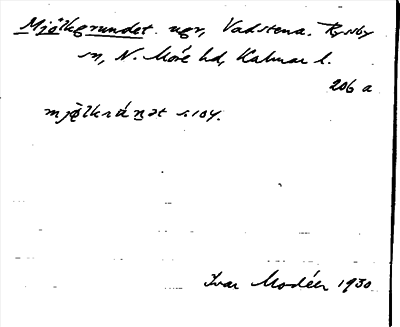 Mjölkgrundet. ugr, Vadstena. Ryssby
sn, N. Möre hd, Kalmar l.
206 a
s. 104.
Ivar Modéer 1930